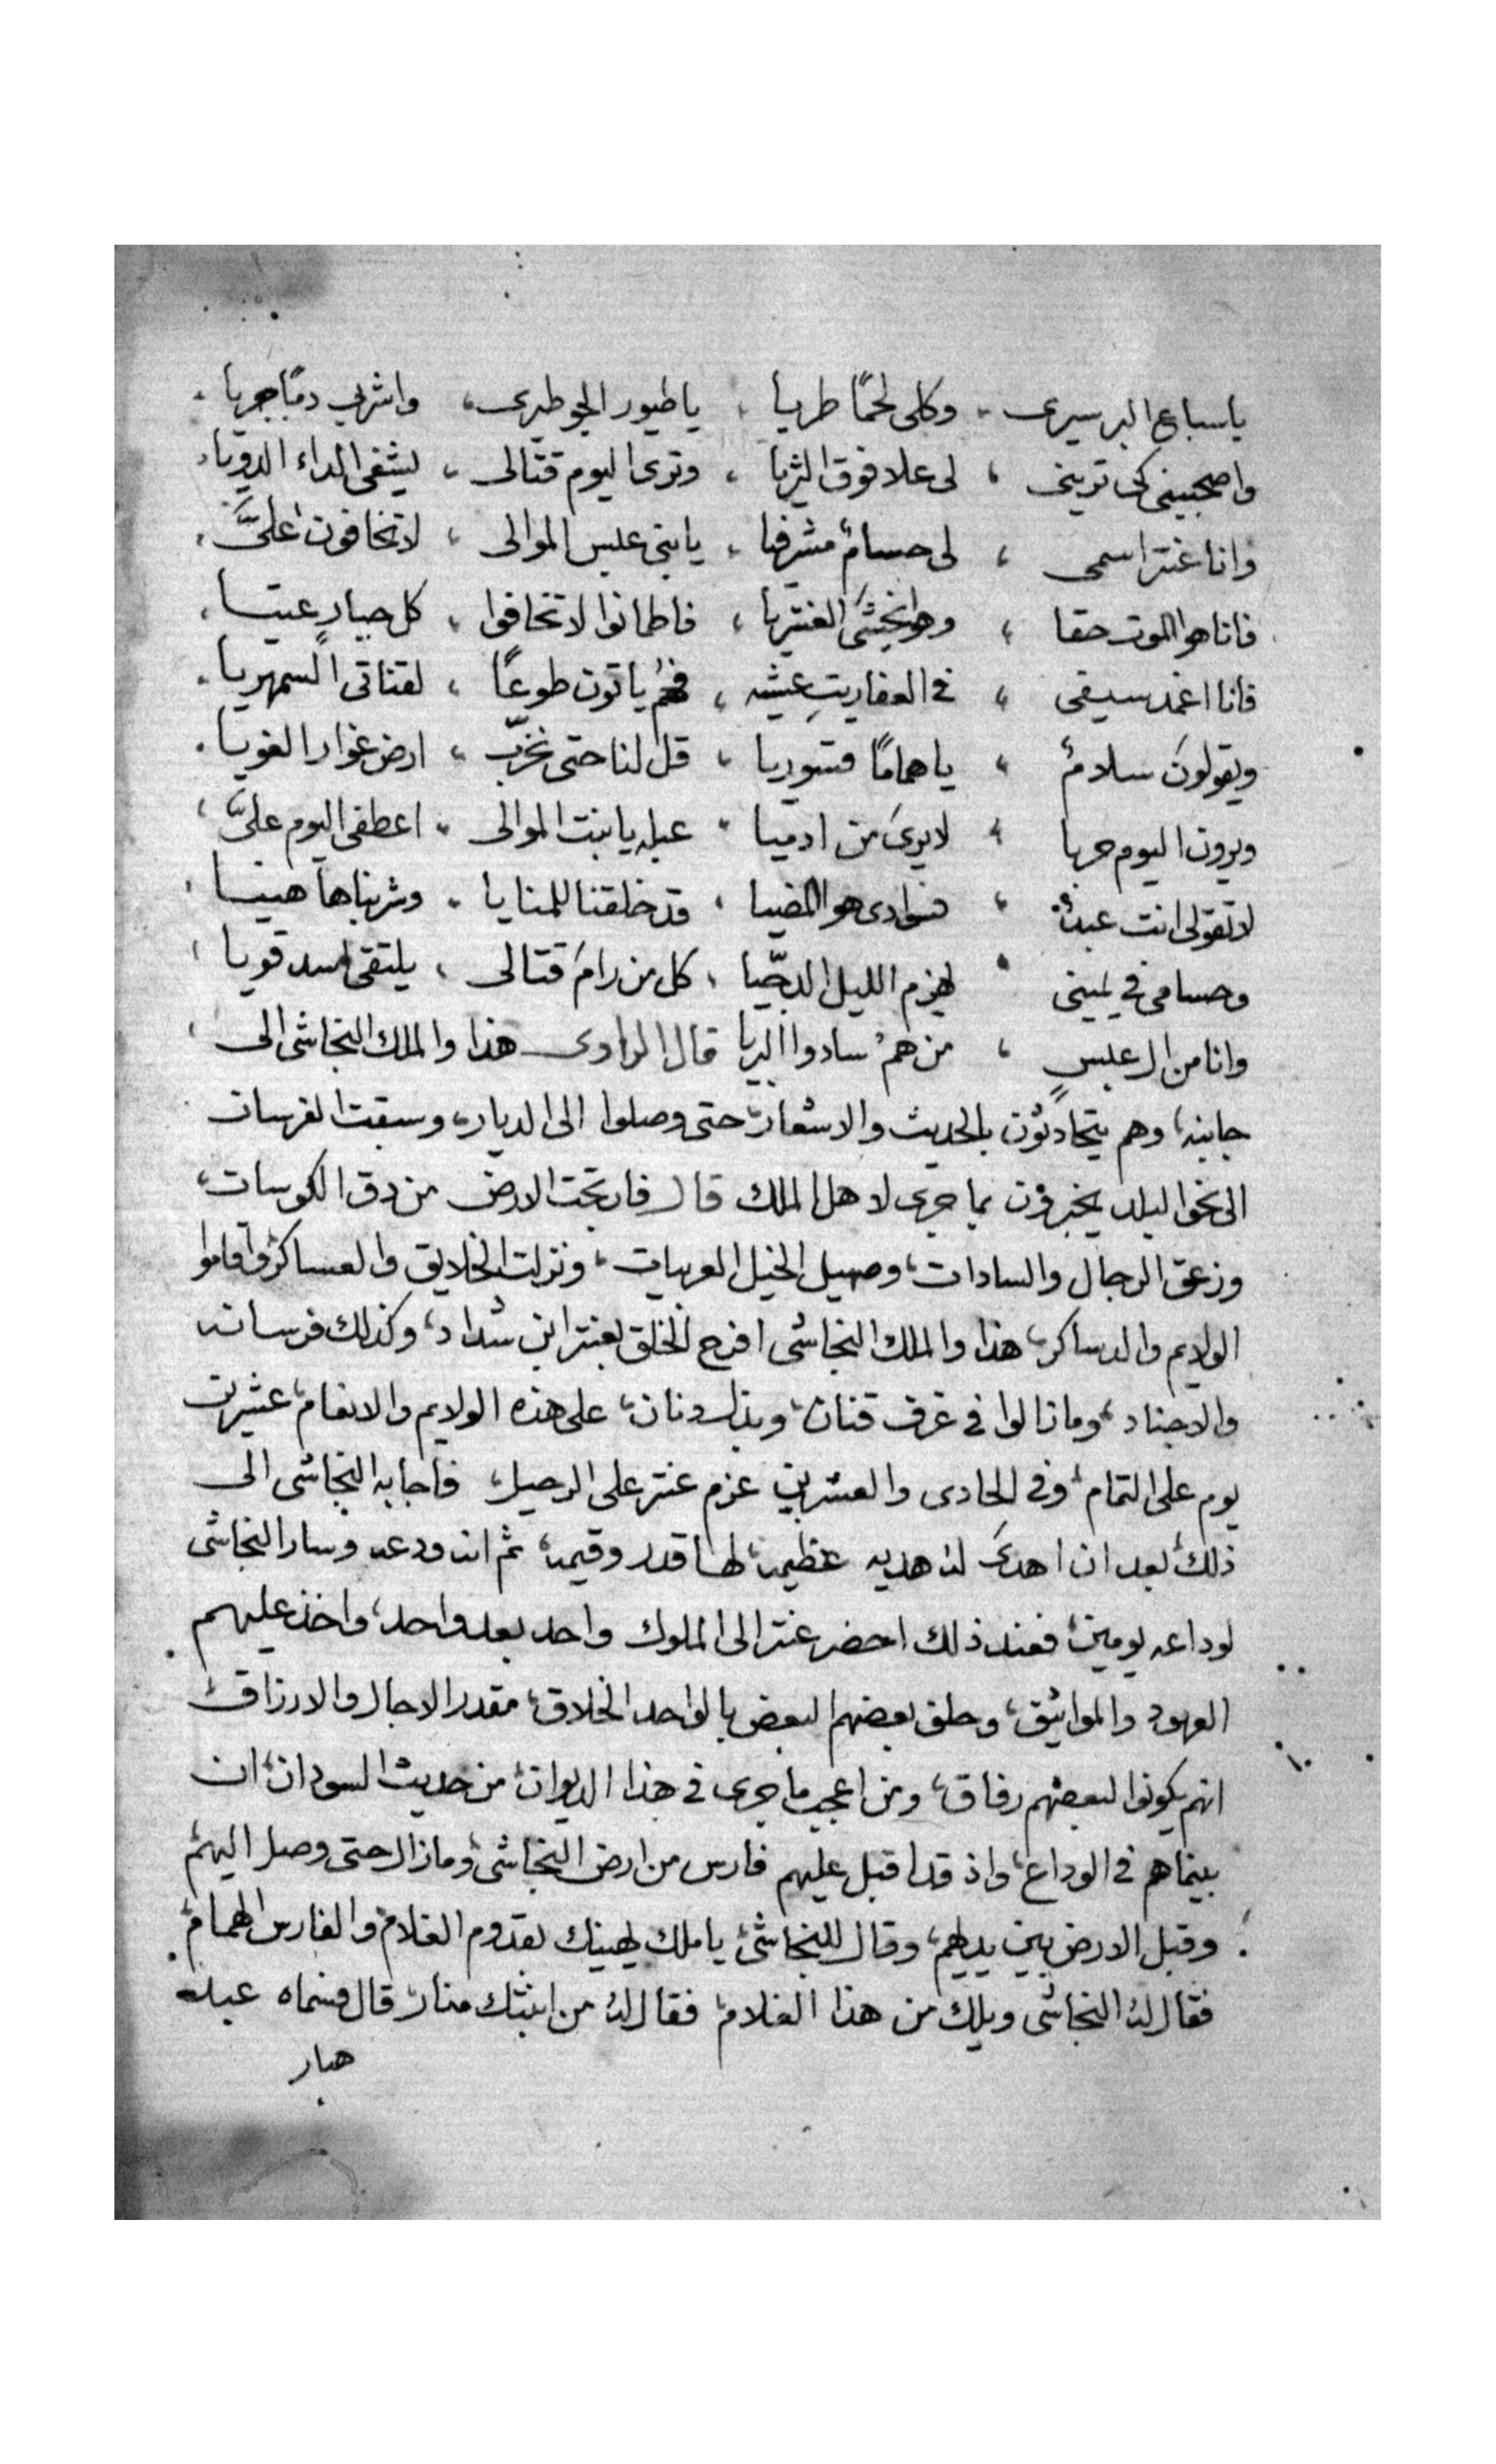 ياسباع البر سيرى ، وكلى لحمًا طريا ، ياطيور الجو طيرى ، واشربى دمًا جريا .
واصحبينى كى ترينى ، لى علا فوق الثريا ، وترى اليوم قتالى ، يشفى الداء الدويا .
وانا عنتر اسمى ، لى حسامٌ مشرفيا ، يابنى عبس الموالى ، لاتخافون علىَّ .
فانا هو الموت حقا ، فاطمانوا لاتخافوا ، كل جبارٍ عتيا .
فانا اغمد سيفى ، فى العفاريت عشيه ، فهُمُ ياتون طوعًا ، لقناتى السمهريا .
ويقولون سلامٌ ، ياهمامًا قسوريا ، قل لنا حتى نخرّب ، ارض عوار الغويا .
ويرون اليوم حربا ، لايرى من ادميا ، عبله يابنت الموالى ، اعطفى اليوم علىَّ ،
لاتقولى انت عبدٌ ، فسوادى هو المضيا ، قد خلقنا للمنايا ، وشربناها هنيا ،
وحسامى فى يمينى ، يهزم الليل الدجّيا ، كل من رام قتالى ، يلتقى اسد قويا ،
وانا من ال عبسٍ ، من همُ سادوا البريا قال الراوى هذا والملك النجاشى الى
جانبه، وهم يتحادثون بالحديث والاشعار، حتى وصلوا الى الديار، وسبقت الفرسان
الى نحو البلد يخبرون بما جرى لاهل الملك قال فارتجت الارض من دق الكوسات،
وزعق الرجال والسادات، وصهيل الخيل العربيات، ونزلت الخلايق والعساكر، واقاموا
الولايم والدساكر، هذا والملك النجاشى افرح الخلق بعنتر ابن شداد، وكذلك فرسانه
والاجناد، ومازالوا فى عزف قنان، ودنان، على هذه الولايم والانعام، عشرين
يوم على التمام، وفى الحادى والعشرين عزم عنتر على الرحيل، فاجابه النجاشى الى
ذلك، بعد ان اهدى له هديه عظيمه، لها قدر وقيمه، ثم انه ودعه وسار النجاشى
لوداعه يومين، فعند ذلك احضر عنتر الى الملوك واحد بعد واحد، واخذ عليهم
العهود والمواثيق، وحلف بعضهم لبعض بالواحد الخلاق، مقدر الاجال والارزاق،
انهم يكونوا لبعضهم رفاق، ومن اعجب ماجرى فى هذا الديوان، من حديث السودان، ان
بينماهم فى الوداع، واذ قد اقبل عليهم فارس من ارض النجاشى، ومازال حتى وصل اليهم،
وقبل الارض بين يديهم، وقال للنجاشى، ياملك يهنيك بقدوم الغلام والفارس الهمام،
فقال له النجاشى ويلك من هذا الغلام، فقال له من ابنتك منار، قال فسماه عبد
هبار